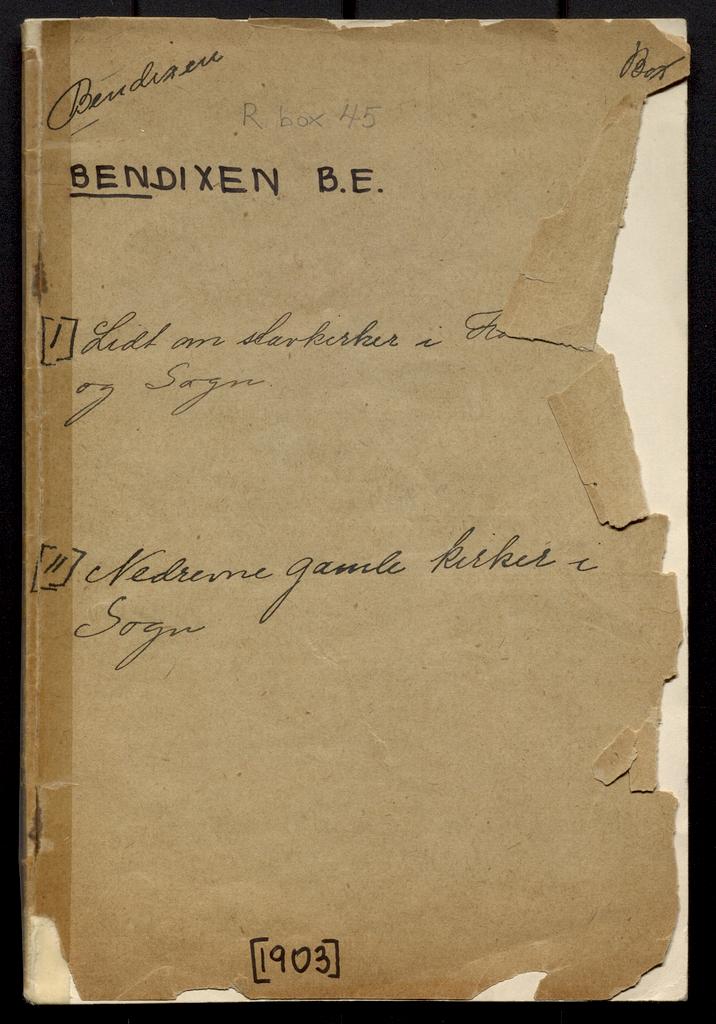 Bendixen
Box
R box 45
BENDIXEN B.E.
[I] Lidt om stavkirker i
og Sogn.
[II] Nedrevne gamle kirker i
Sogn
[1903]